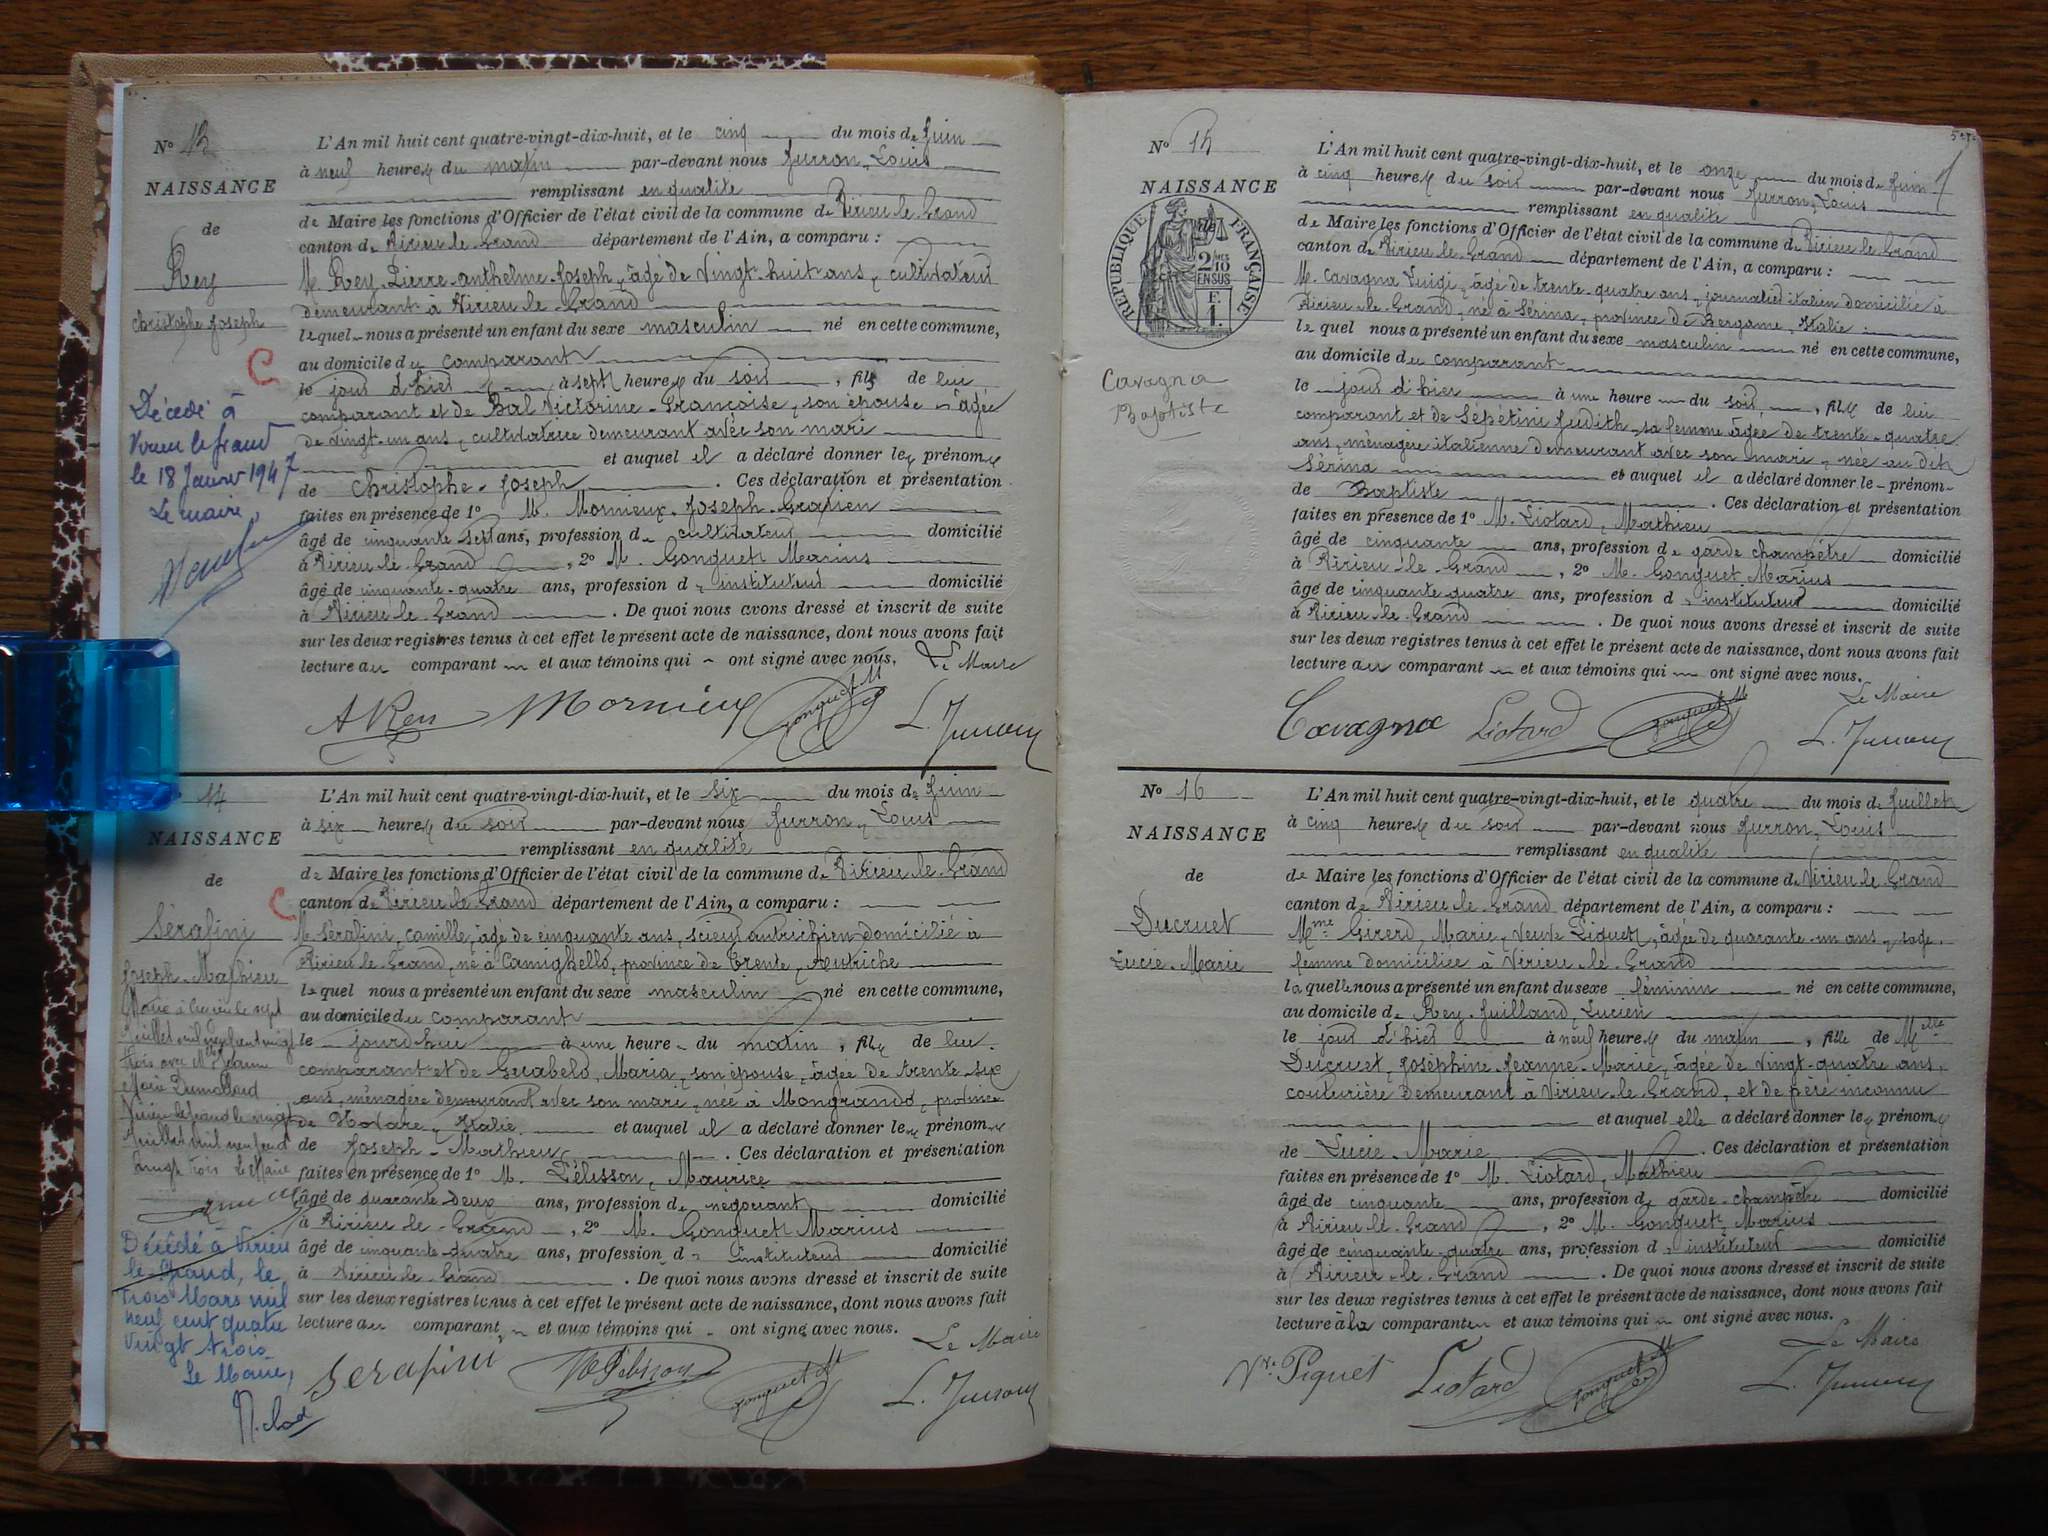 N° 13
NAISSANCE
de
Rey
Christophe Joseph
C
Décédé à
Virieu le Grand
le 18 Janvier 1947
Le maire,
L'An mil huit cent quatre-vingt-dix-huit, et le cinq du mois de Juin
à neuf heures du matin par-devant nous Jurron, Louis
remplissant en qualité
de Maire les fonctions d'Officier de l'état civil de la commune de Virieu-le-Grand
canton de Virieu-le-Grand département de l'Ain, a comparu :
M. Rey Pierre-Anthelme-Joseph, âgé de vingt-huit ans, cultivateur
demeurant à Virieu-le-Grand
lequel nous a présenté un enfant du sexe masculin né en cette commune,
au domicile du comparant
le jour d'hier à sept heures du soir, fils de lui
comparant et de Bal Victorine-Françoise, son épouse, âgée
de vingt-un ans, cultivatrice demeurant avec son mari
et auquel il a déclaré donner les prénoms
de Christophe-Joseph. Ces déclaration et présentation
faites en présence de 1° M. Mornieux Joseph-Gratien
âgé de cinquante-sept ans, profession de cultivateur domicilié
à Virieu-le-Grand, 2° M. Gonguet Marius
âgé de cinquante-quatre ans, profession d'instituteur domicilié
à Virieu-le-Grand. De quoi nous avons dressé et inscrit de suite
sur les deux registres tenus à cet effet le présent acte de naissance, dont nous avons fait
lecture au comparant et aux témoins qui ont signé avec nous. Le Maire
A Rey Mornieux Gonguet M L. Jurron
14
NAISSANCE
de
C
Sérafini
Joseph-Mathieu
Marié à le sept
Juillet mil neuf cent vingt
trois avec Melle Jeanne
Marie Dumollard
Virieu le Grand le vingt
Juillet mil neuf cent
vingt trois Le Maire
Décédé à Virieu
le-Grand, le
trois Mars mil
neuf cent quatre
vingt trois
Le Maire,
L'An mil huit cent quatre-vingt-dix-huit, et le six du mois de Juin
à six heures du soir par-devant nous Jurron, Louis
remplissant en qualité
de Maire les fonctions d'Officier de l'état civil de la commune de Virieu-le-Grand
canton de Virieu-le-Grand département de l'Ain, a comparu :
M. Sérafini, Camille, âgé de cinquante ans, scieur autrichien domicilié à
Virieu-le-Grand, né à Camighello, province de Trente, Autriche
lequel nous a présenté un enfant du sexe masculin né en cette commune,
au domicile du comparant
le jourd'hui à une heure du matin, fils de lui
comparant et de Gerabelo, Maria, son épouse, âgée de trente-six
ans, ménagère demeurant avec son mari, née à Mongrando, province
de Novare, Italie. et auquel il a déclaré donner les prénoms
de Joseph-Mathieu. Ces déclaration et présentation
faites en présence de 1° M. Pélisson, Maurice
âgé de quarante-deux ans, profession de négociant domicilié
à Virieu-le-Grand, 2° M. Gonguet Marius
âgé de cinquante-quatre ans, profession d'instituteur domicilié
à Virieu-le-Grand. De quoi nous avons dressé et inscrit de suite
sur les deux registres tenus à cet effet le présent acte de naissance, dont nous avons fait
lecture au comparant et aux témoins qui ont signé avec nous. Le Maire
Serafini Pélisson Gonguet M L. Jurron
N° 15
NAISSANCE
de
RÉPUBLIQUE FRANÇAISE
2/10
EN SUS
F.
1.
Cavagna
Baptiste
L'An mil huit cent quatre-vingt-dix-huit, et le onze du mois de Juin
à cinq heures du soir par-devant nous Jurron, Louis
remplissant en qualité
de Maire les fonctions d'Officier de l'état civil de la commune de Virieu-le-Grand
canton de Virieu-le-Grand département de l'Ain, a comparu :
M. Cavagna Luigi, âgé de trente-quatre ans, journalier italien domicilié à
Virieu-le-Grand, né à Sérina, province de Bergame, Italie.
lequel nous a présenté un enfant du sexe masculin né en cette commune,
au domicile du comparant
le jour d'hier à une heure du soir, fils de lui
comparant et de Sépétini Judith, sa femme âgée de trente-quatre
ans, ménagère italienne demeurant avec son mari, née au dit
Sérina et auquel il a déclaré donner le prénom
de Baptiste. Ces déclaration et présentation
faites en présence de 1° M. Liotard, Mathieu
âgé de cinquante ans, profession de garde champêtre domicilié
à Virieu-le-Grand, 2° M. Gonguet, Marius
âgé de cinquante-quatre ans, profession d'instituteur domicilié
à Virieu-le-Grand. De quoi nous avons dressé et inscrit de suite
sur les deux registres tenus à cet effet le présent acte de naissance, dont nous avons fait
lecture au comparant et aux témoins qui ont signé avec nous.
Le Maire
Cavagna Liotard Gonguet M L. Jurron
N° 16
NAISSANCE
de
Ducruet
Lucie-Marie
L'An mil huit cent quatre-vingt-dix-huit, et le quatre du mois de Juillet
à cinq heures du soir par-devant nous Jurron, Louis
remplissant en qualité
de Maire les fonctions d'Officier de l'état civil de la commune de Virieu-le-Grand
canton de Virieu-le-Grand département de l'Ain, a comparu :
Mme Girerd, Marie, Veuve Piguet, âgée de quarante-un ans, sage-
femme domiciliée à Virieu-le-Grand
laquelle nous a présenté un enfant du sexe féminin né en cette commune,
au domicile de Rey-Juilland, Lucien
le jour d'hier à neuf heures du matin, fille de Melle
Ducruet, Joséphine-Jeanne-Marie, âgée de vingt-quatre ans,
couturière demeurant à Virieu-le-Grand, et de père inconnu
et auquel elle a déclaré donner les prénoms
de Lucie-Marie. Ces déclaration et présentation
faites en présence de 1° M. Liotard, Mathieu
âgé de cinquante ans, profession de garde-champêtre domicilié
à Virieu-le-Grand, 2° M. Gonguet, Marius
âgé de cinquante-quatre ans, profession d'instituteur domicilié
à Virieu-le-Grand. De quoi nous avons dressé et inscrit de suite
sur les deux registres tenus à cet effet le présent acte de naissance, dont nous avons fait
lecture à la comparante et aux témoins qui ont signé avec nous.
Le Maire
Vve Piguet Liotard Gonguet M L. Jurron